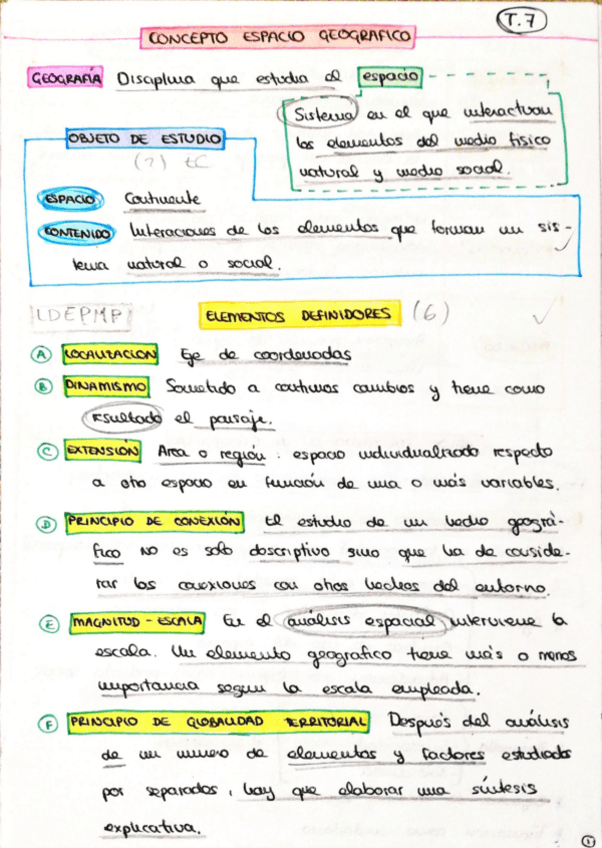 T.7
CONCEPTO ESPACIO GEOGRAFICO
GEOGRAFÍA Disciplina que estudia el espacio
Sistema en el que interactuan
los elementos del medio fisico
natural y medio social.
OBJETO DE ESTUDIO
(2) EC
ESPACIO Continente
CONTENIDO Interaciones de los elementos que forman un sis-
tema natural o social.
LDEPMP ELEMENTOS DEFINIDORES (6)
A LOCALIZACION Eje de coordenadas
B DINAMISMO Sometido a continuos cambios y tiene como
resultado el paisaje.
C EXTENSIÓN Area o región: espacio individualizado respecto
a otro espacio en función de una o más variables.
D PRINCIPIO DE CONEXIÓN El estudio de un hecho geográ-
fico no es solo descriptivo sino que ha de conside-
rar las conexiones con otros hechos del entorno.
E MAGNITUD - ESCALA En el análisis espacial interviene la
escala. Un elemento geografico tiene más o menos
importancia segun la escala empleada.
F PRINCIPIO DE GLOBALIDAD TERRITORIAL Después del análisis
de un numero de elementos y factores estudiados
por separados, hay que elaborar una síntesis
explicativa.
1